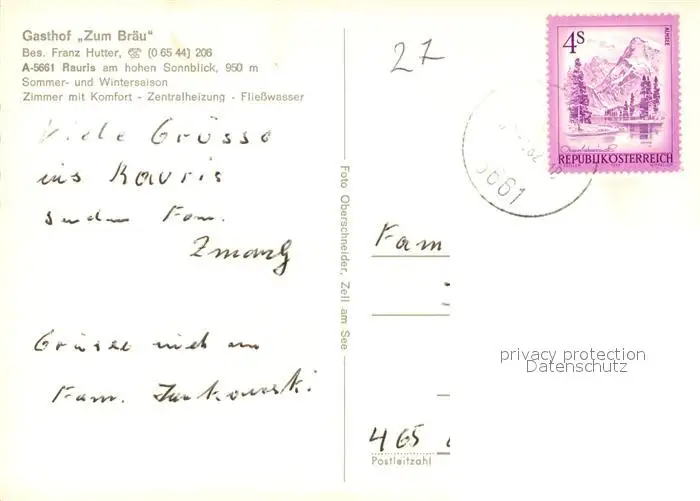 Gasthof „Zum Bräu"
Bes. Franz Hutter, ☎ (0 65 44) 206
A-5661 Rauris am hohen Sonnblick, 950 m
Sommer- und Wintersaison
Zimmer mit Komfort - Zentralheizung - Fließwasser
27
4S
ALMSEE
REPUBLIK ÖSTERREICH
5661
Viele Grüsse
aus Rauris
senden Fam.
Grüsse auch an
Fam. Jankowski
Foto Oberschneider, Zell am See
Fam
465
Postleitzahl
privacy protection
Datenschutz